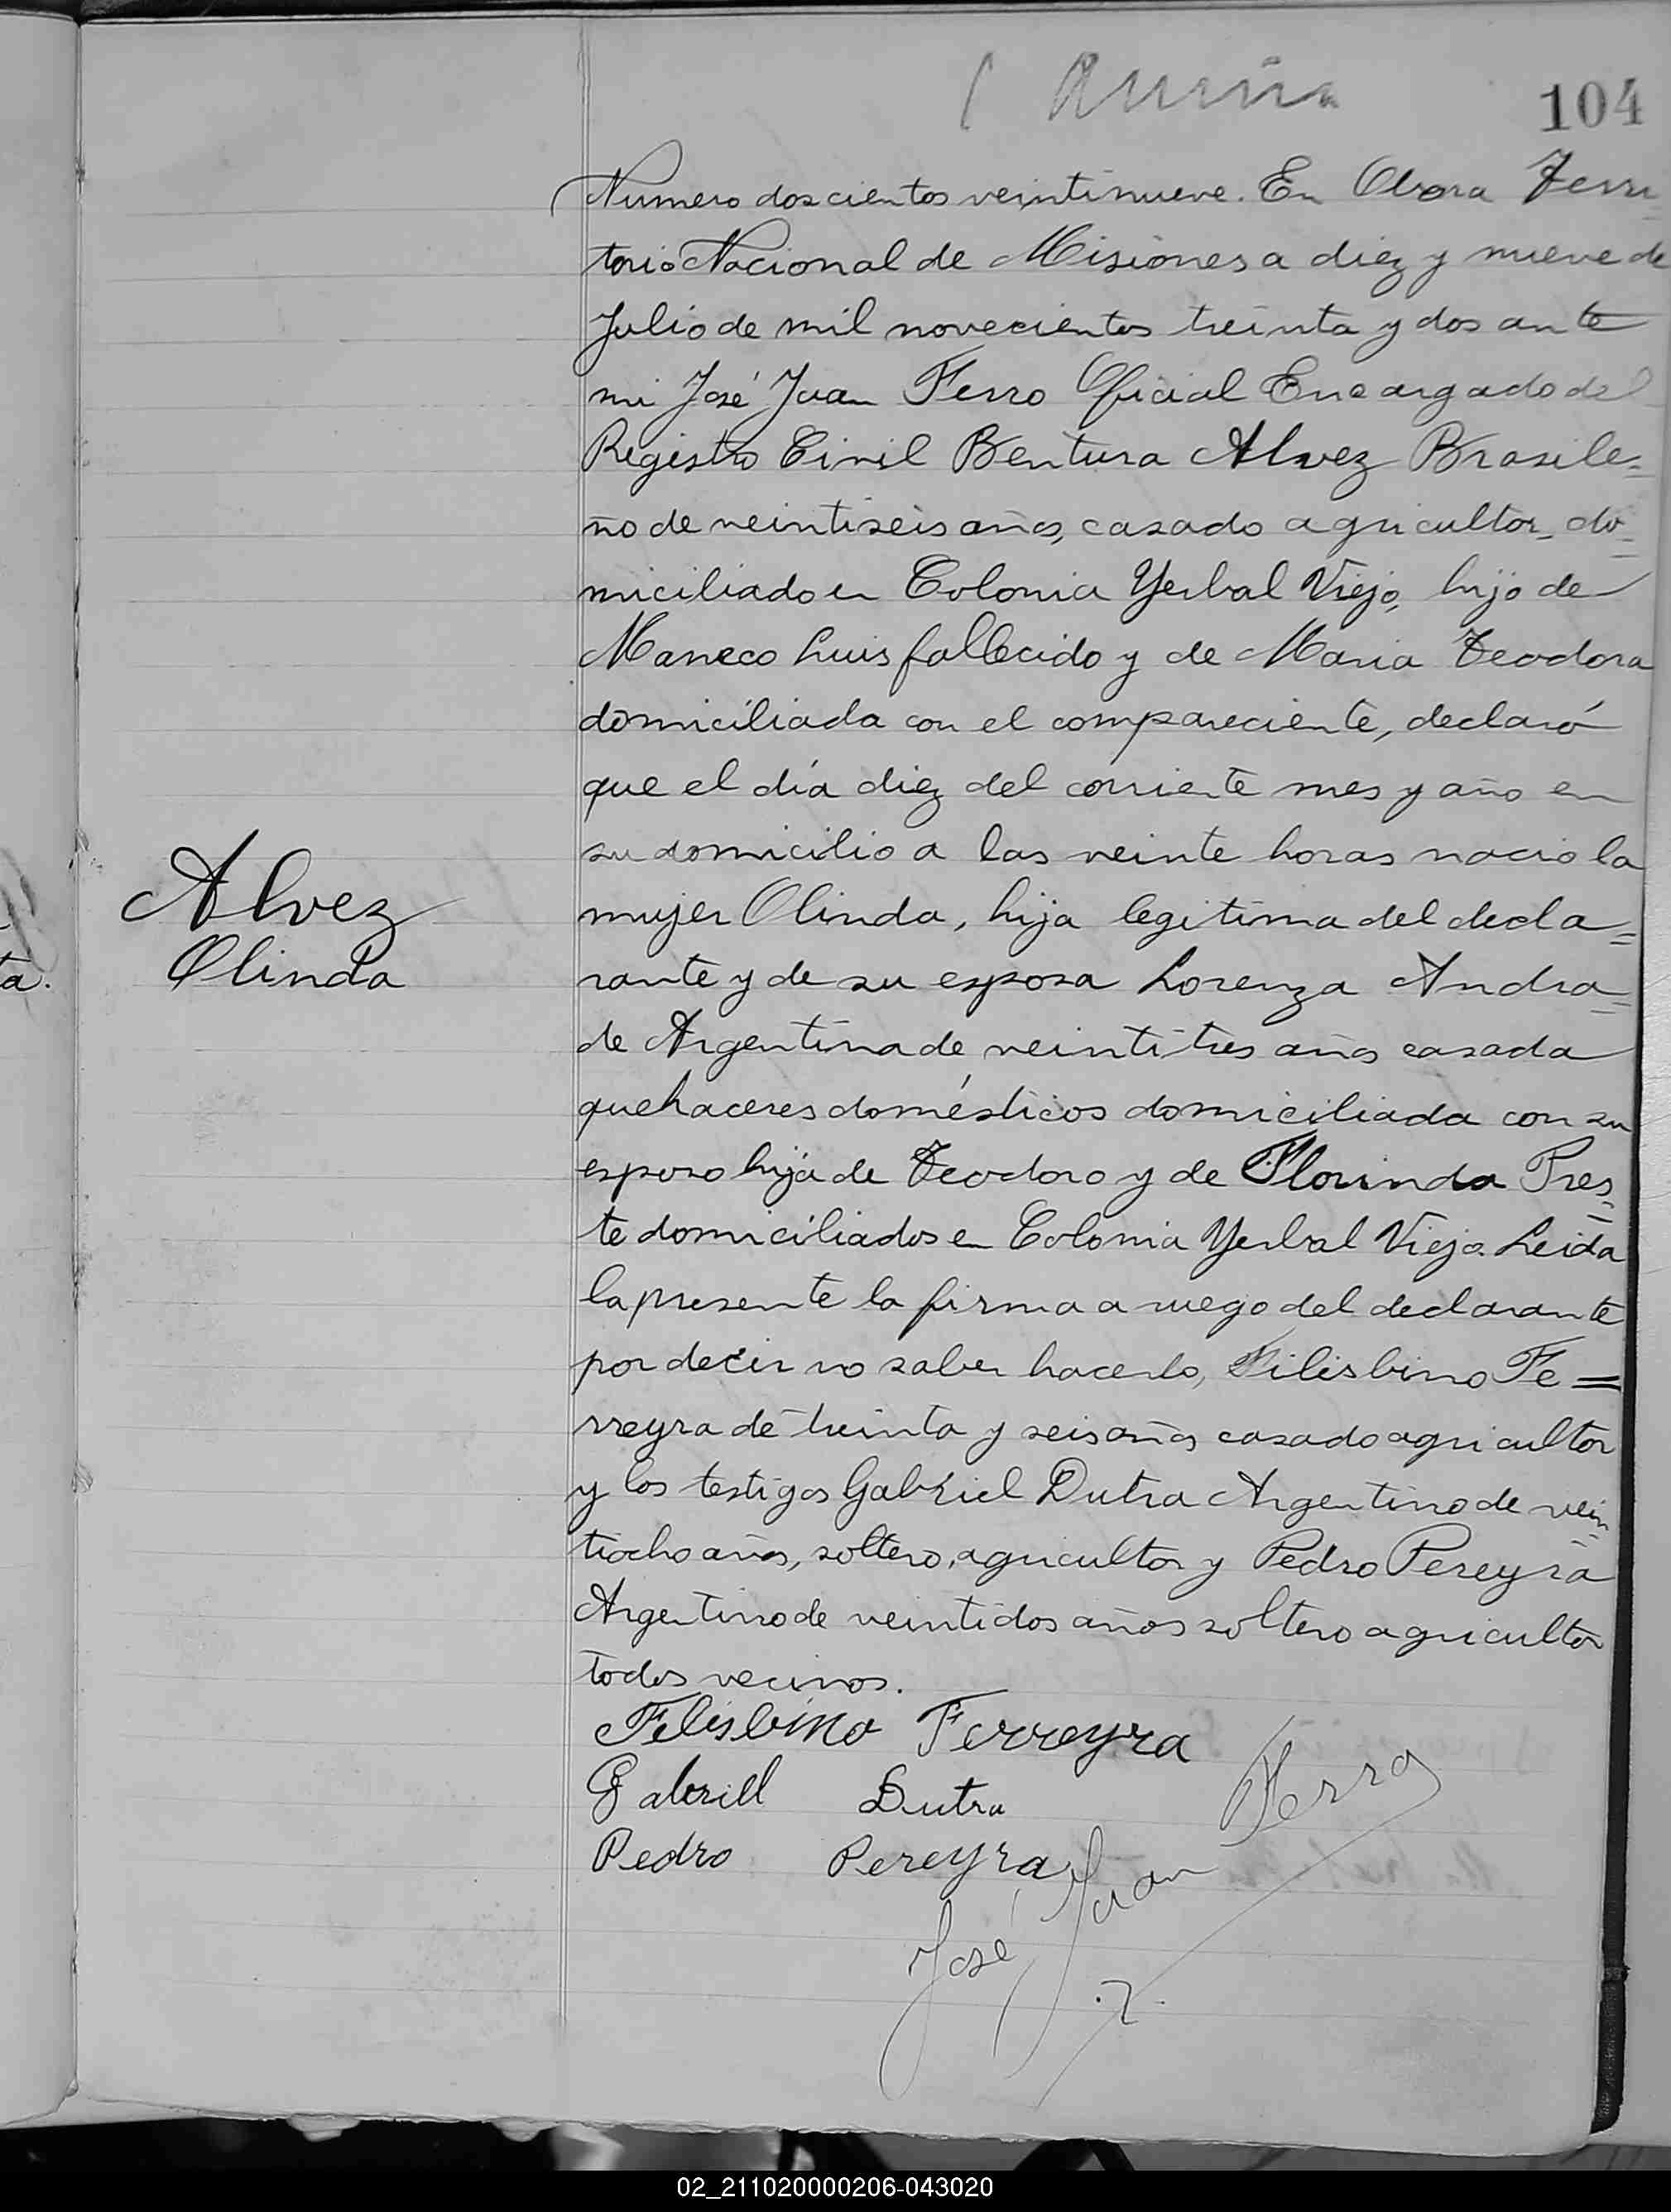 104
Numero doscientos veintinueve. En Obera Terri
torio Nacional de Misiones a diez y nueve de
Julio de mil novecientos treinta y dos ante
mi José Juan Ferro Oficial Encargado del
Registro Civil Bentura Alvez Brasile=
ño de veintiseis años, casado agricultor, do=
miciliado en Colonia Yerbal Viejo, hijo de
Maneco Luis fallecido y de Maria Teodora
domiciliada con el compareciente, declaró
que el día diez del corriente mes y año en
su domicilio a las veinte horas nacio la
mujer Olinda, hija legitima del decla=
rante y de su esposa Lorenza Andra=
de Argentina de veintitres años casada
quehaceres domésticos domiciliada con su
esposo hija de Teodoro y de Florinda Pres=
te domiciliados en Colonia Yerbal Viejo. Leida
la presente la firma a ruego del declarante
por decir no saber hacerlo, Filisbino Fe=
rreyra de treinta y seis años casado agricultor
y los testigos Gabriel Dutra Argentino de vein
tiocho años, soltero, agricultor y Pedro Pereyra
Argentino de veintidos años soltero agricultor
todos vecinos.
Alvez
Olinda
ta.
Felisbino Ferreyra
Gabriell Dutra
Pedro Pereyra
José Juan Ferro
02_211020000206-043020